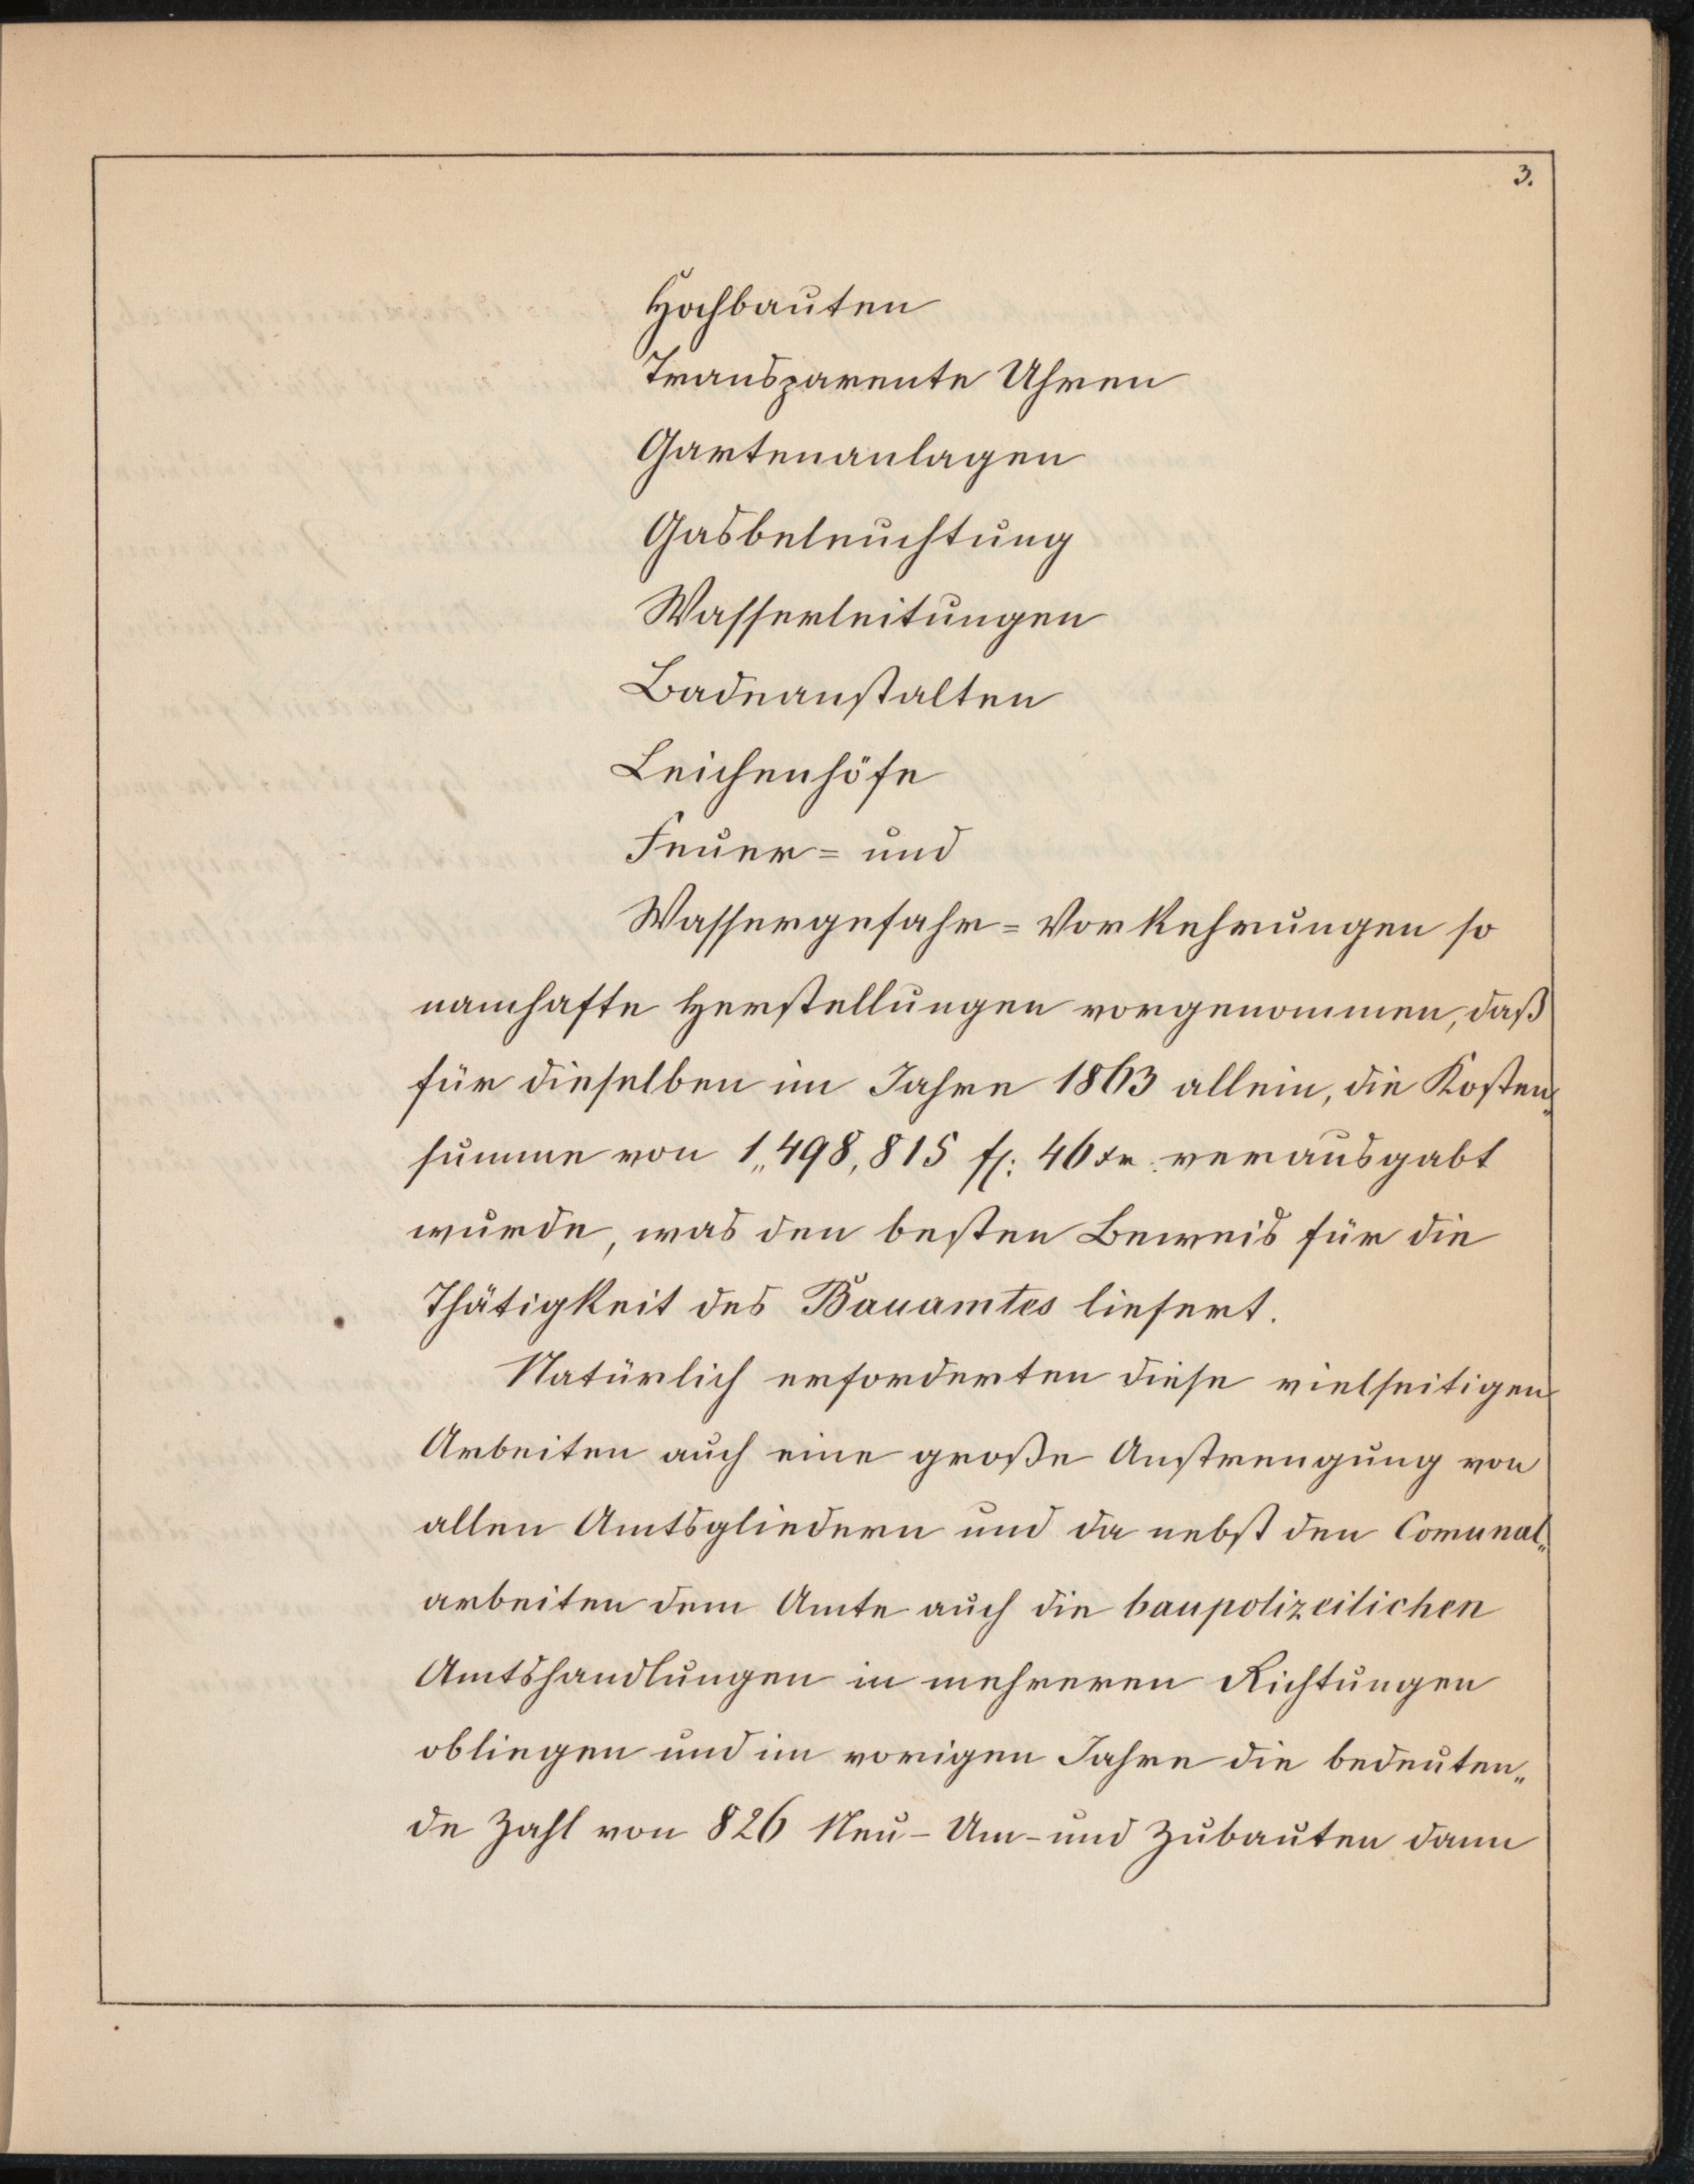 3.
Hochbauten
Transparente Uhren
Gartenanlagen
Gasbeleuchtung
Wasserleitungen
Badeanstalten
Leichenhöfe
Feuer= und
Wassergefahr=Vorkehrungen so
namhafte Herstellungen vorgenommen, daß
für dieselben im Jahre 1863 allein, die Kosten„
summe von 1„498,815 fl: 46 xr. verausgabt
wurde, was den besten Beweis für die
Thätigkeit des Bauamtes liefert.
Natürlich erforderten diese vielseitigen
Arbeiten auch eine große Anstrengung von
allen Amtsgliedern und da nebst den Comunal„
arbeiten dem Amte auch die baupolizeilichen
Amtshandlungen in mehreren Richtungen
obliegen und im vorigen Jahre die bedeuten„
de Zahl von 826 Neu-Um-und Zubauten dann